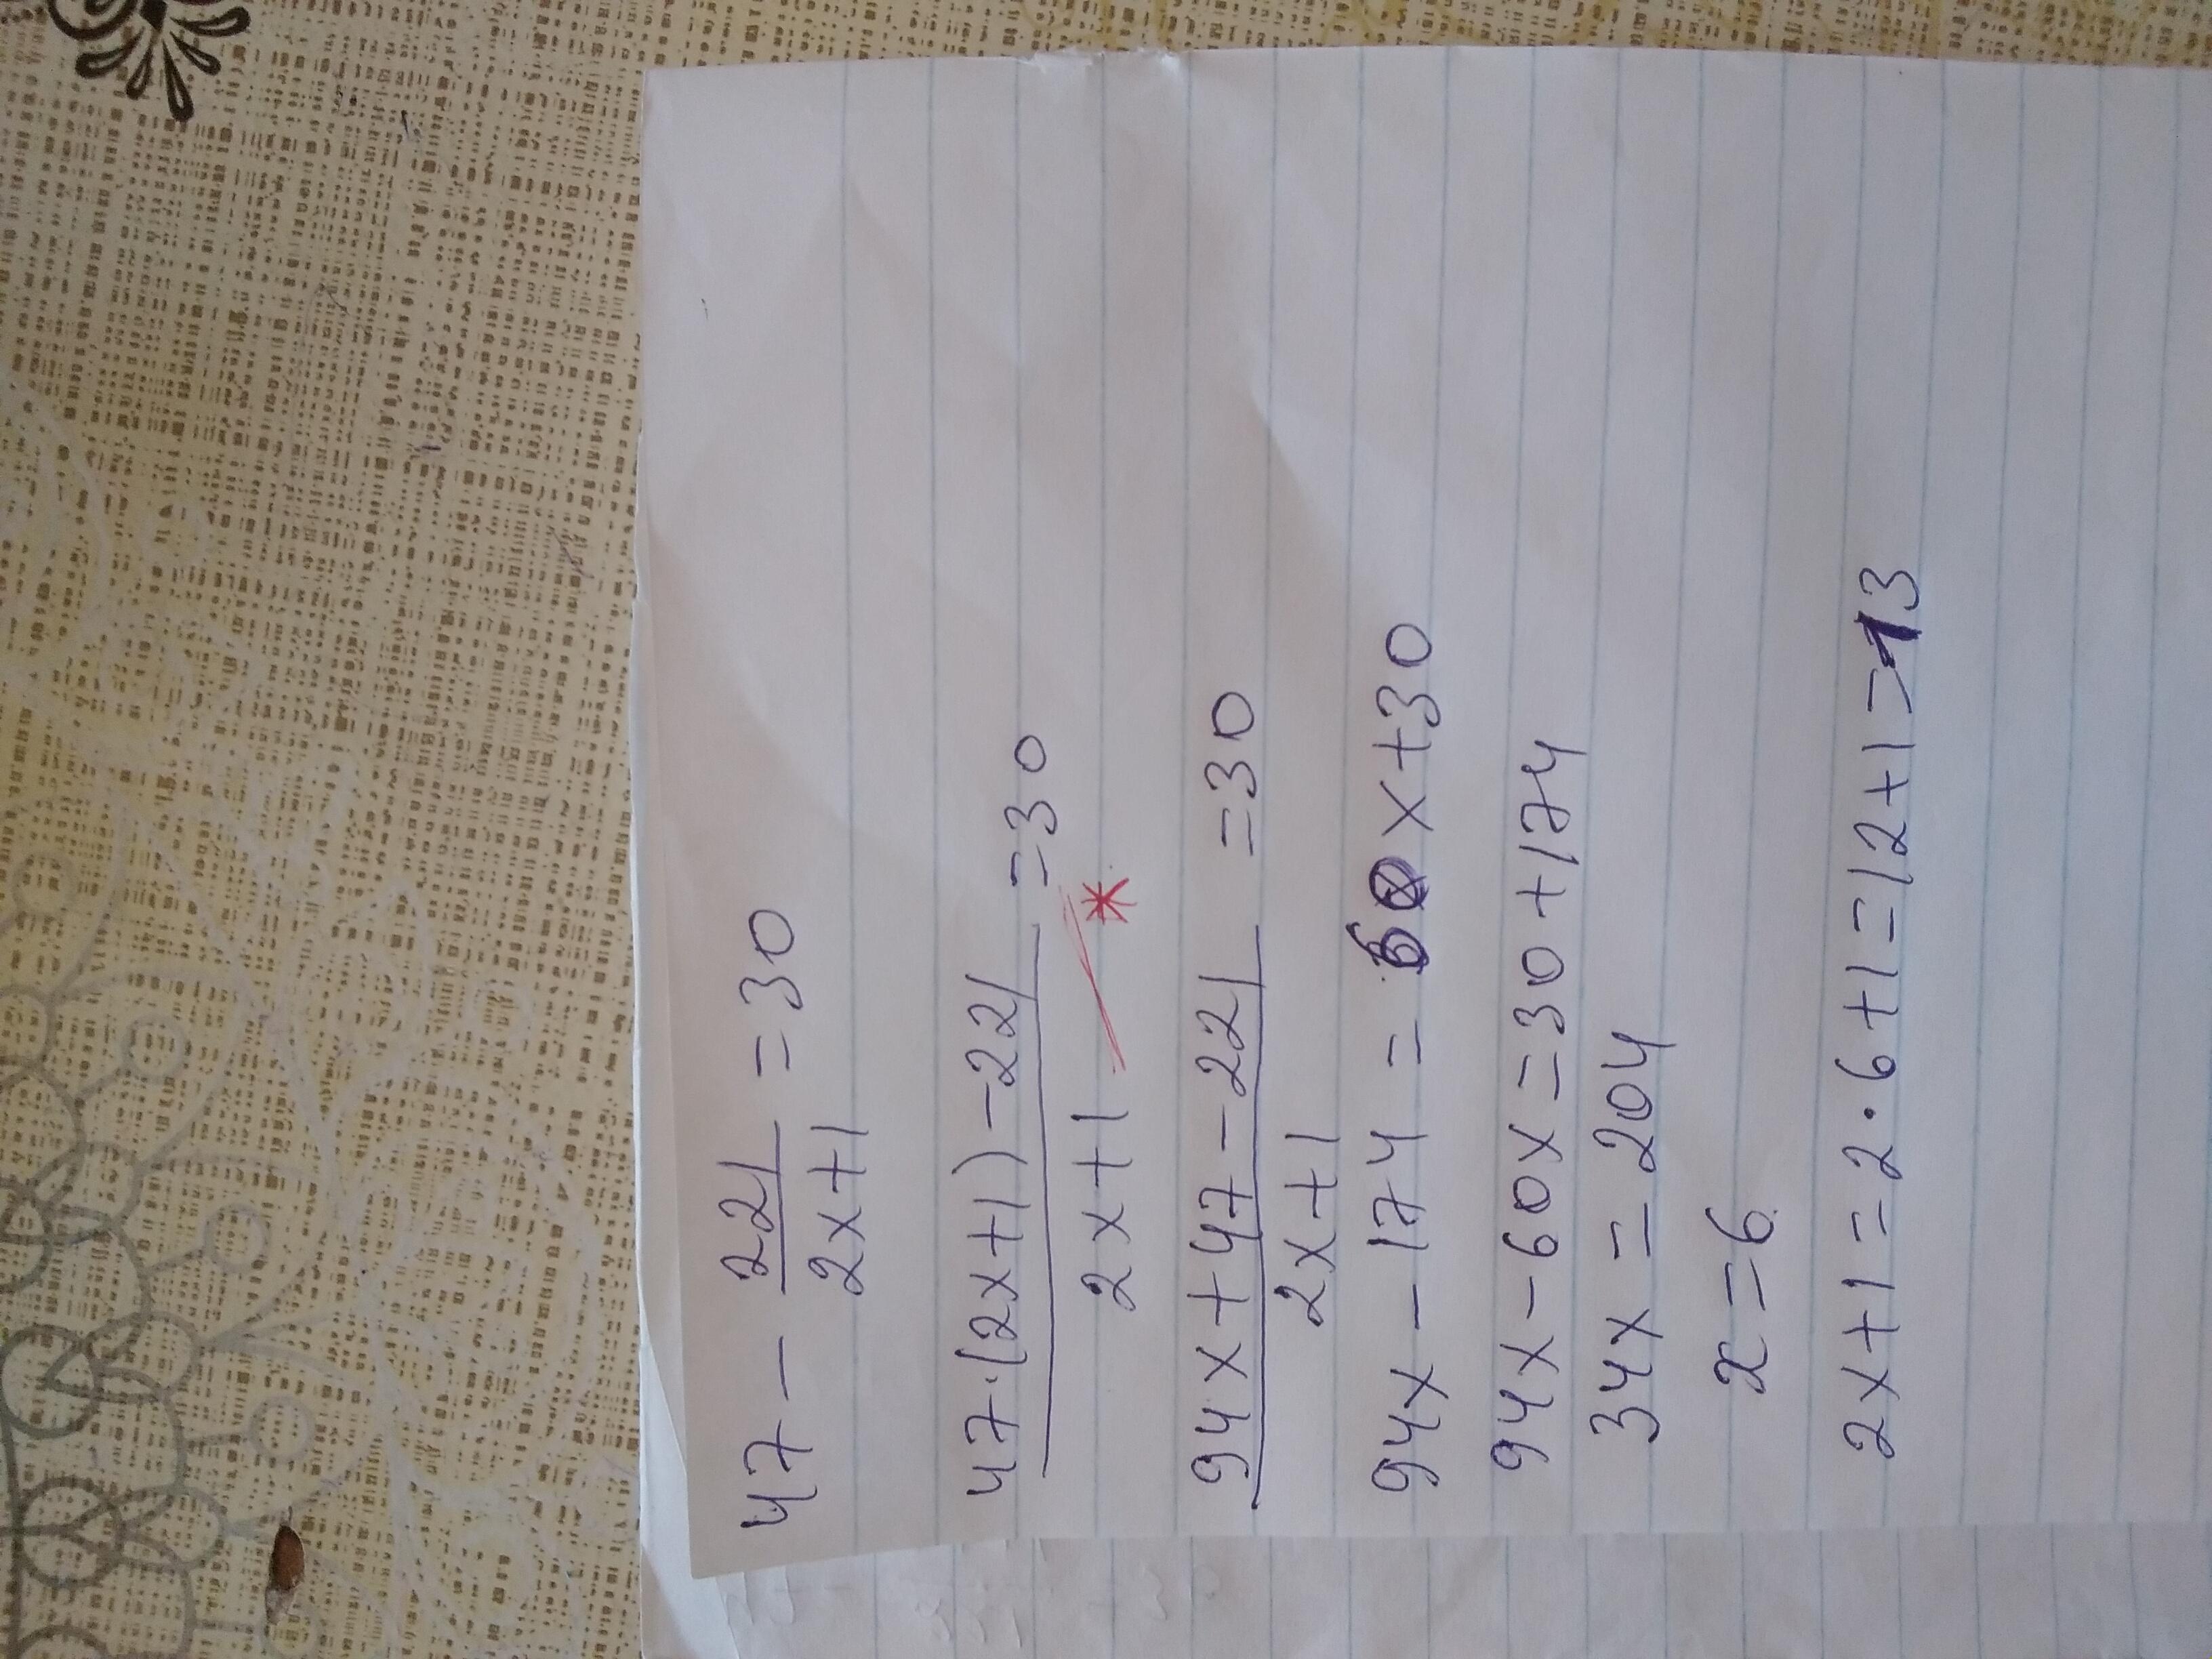 47 - 221/(2x+1) = 30
(47·(2x+1) - 221)/(2x+1) = 30
*
(94x + 47 - 221)/(2x+1) = 30
94x - 174 = 60x + 30
94x - 60x = 30 + 174
34x = 204
x = 6
2x+1 = 2·6+1 = 12+1 = 13